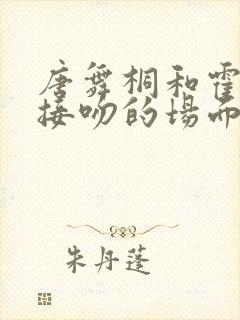 唐舞桐和霍
接吻的场面
朱丹蓬